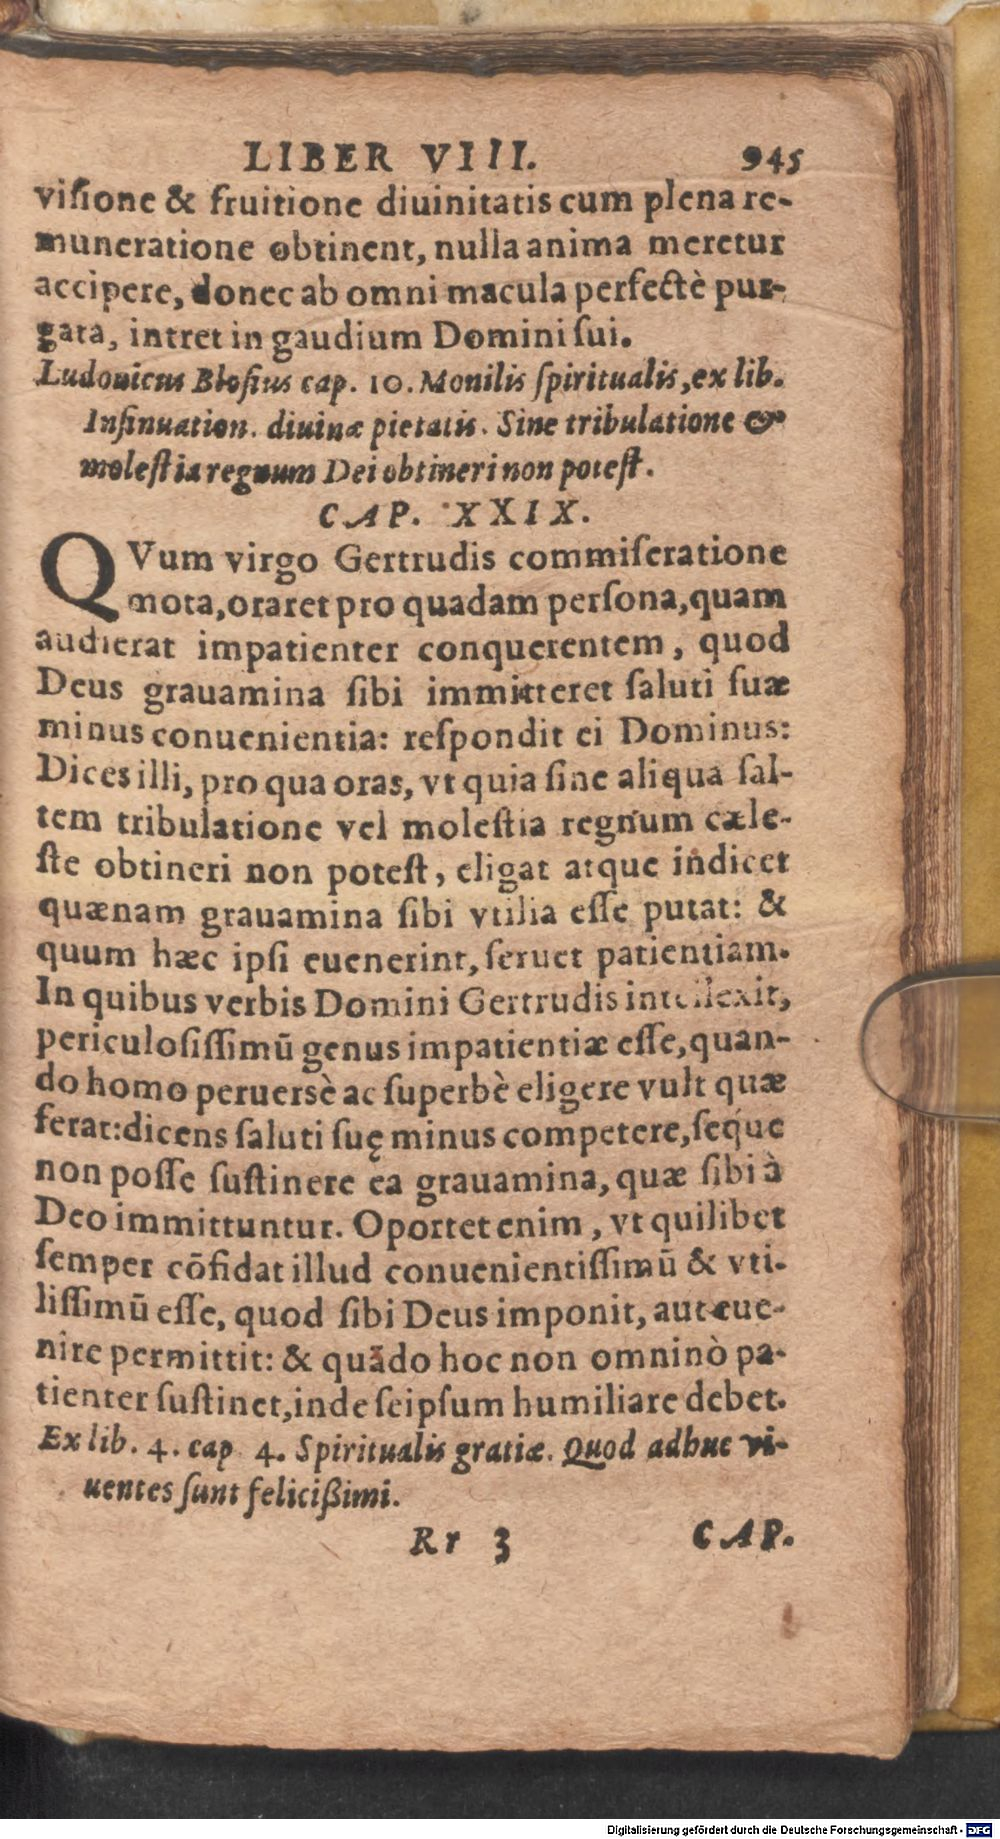 LIBER VIII. 945
viſione & fruitione diuinitatis cum plena re-
muneratione obtinent, nulla anima meretur
accipere, donec ab omni macula perfectè pur-
gata, intret in gaudium Domini ſui.
Ludouicus Bloſius cap. 10. Monilis ſpiritualis, ex lib.
Inſinuation. diuinæ pietatis. Sine tribulatione &
moleſtia regnum Dei obtineri non poteſt.
CAP. XXIX.
QVum virgo Gertrudis commiſeratione
mota, oraret pro quadam perſona, quam
audierat impatienter conquerentem, quod
Deus grauamina ſibi immitteret ſaluti ſuæ
minus conuenientia: reſpondit ei Dominus:
Dices illi, pro qua oras, vt quia ſine aliqua ſal-
tem tribulatione vel moleſtia regnum cæle-
ſte obtineri non poteſt, eligat atque indicet
quænam grauamina ſibi vtilia eſſe putat: &
quum hæc ipſi euenerint, ſeruet patientiam.
In quibus verbis Domini Gertrudis intellexit,
periculoſiſſimū genus impatientiæ eſſe, quan-
do homo peruersè ac ſuperbè eligere vult quæ
ferat: dicens ſaluti ſuę minus competere, ſeque
non poſſe ſuſtinere ea grauamina, quæ ſibi à
Deo immittuntur. Oportet enim, vt quilibet
ſemper cōfidat illud conuenientiſſimū & vti-
liſſimū eſſe, quod ſibi Deus imponit, aut eue-
nire permittit: & quādo hoc non omninò pa-
tienter ſuſtinet, inde ſeipſum humiliare debet.
Ex lib. 4. cap 4. Spiritualis gratiæ. Quod adhuc vi-
uentes ſunt feliciſſimi.
Rr 3 CAP.
Digitalisierung gefördert durch die Deutsche Forschungsgemeinschaft - DFG